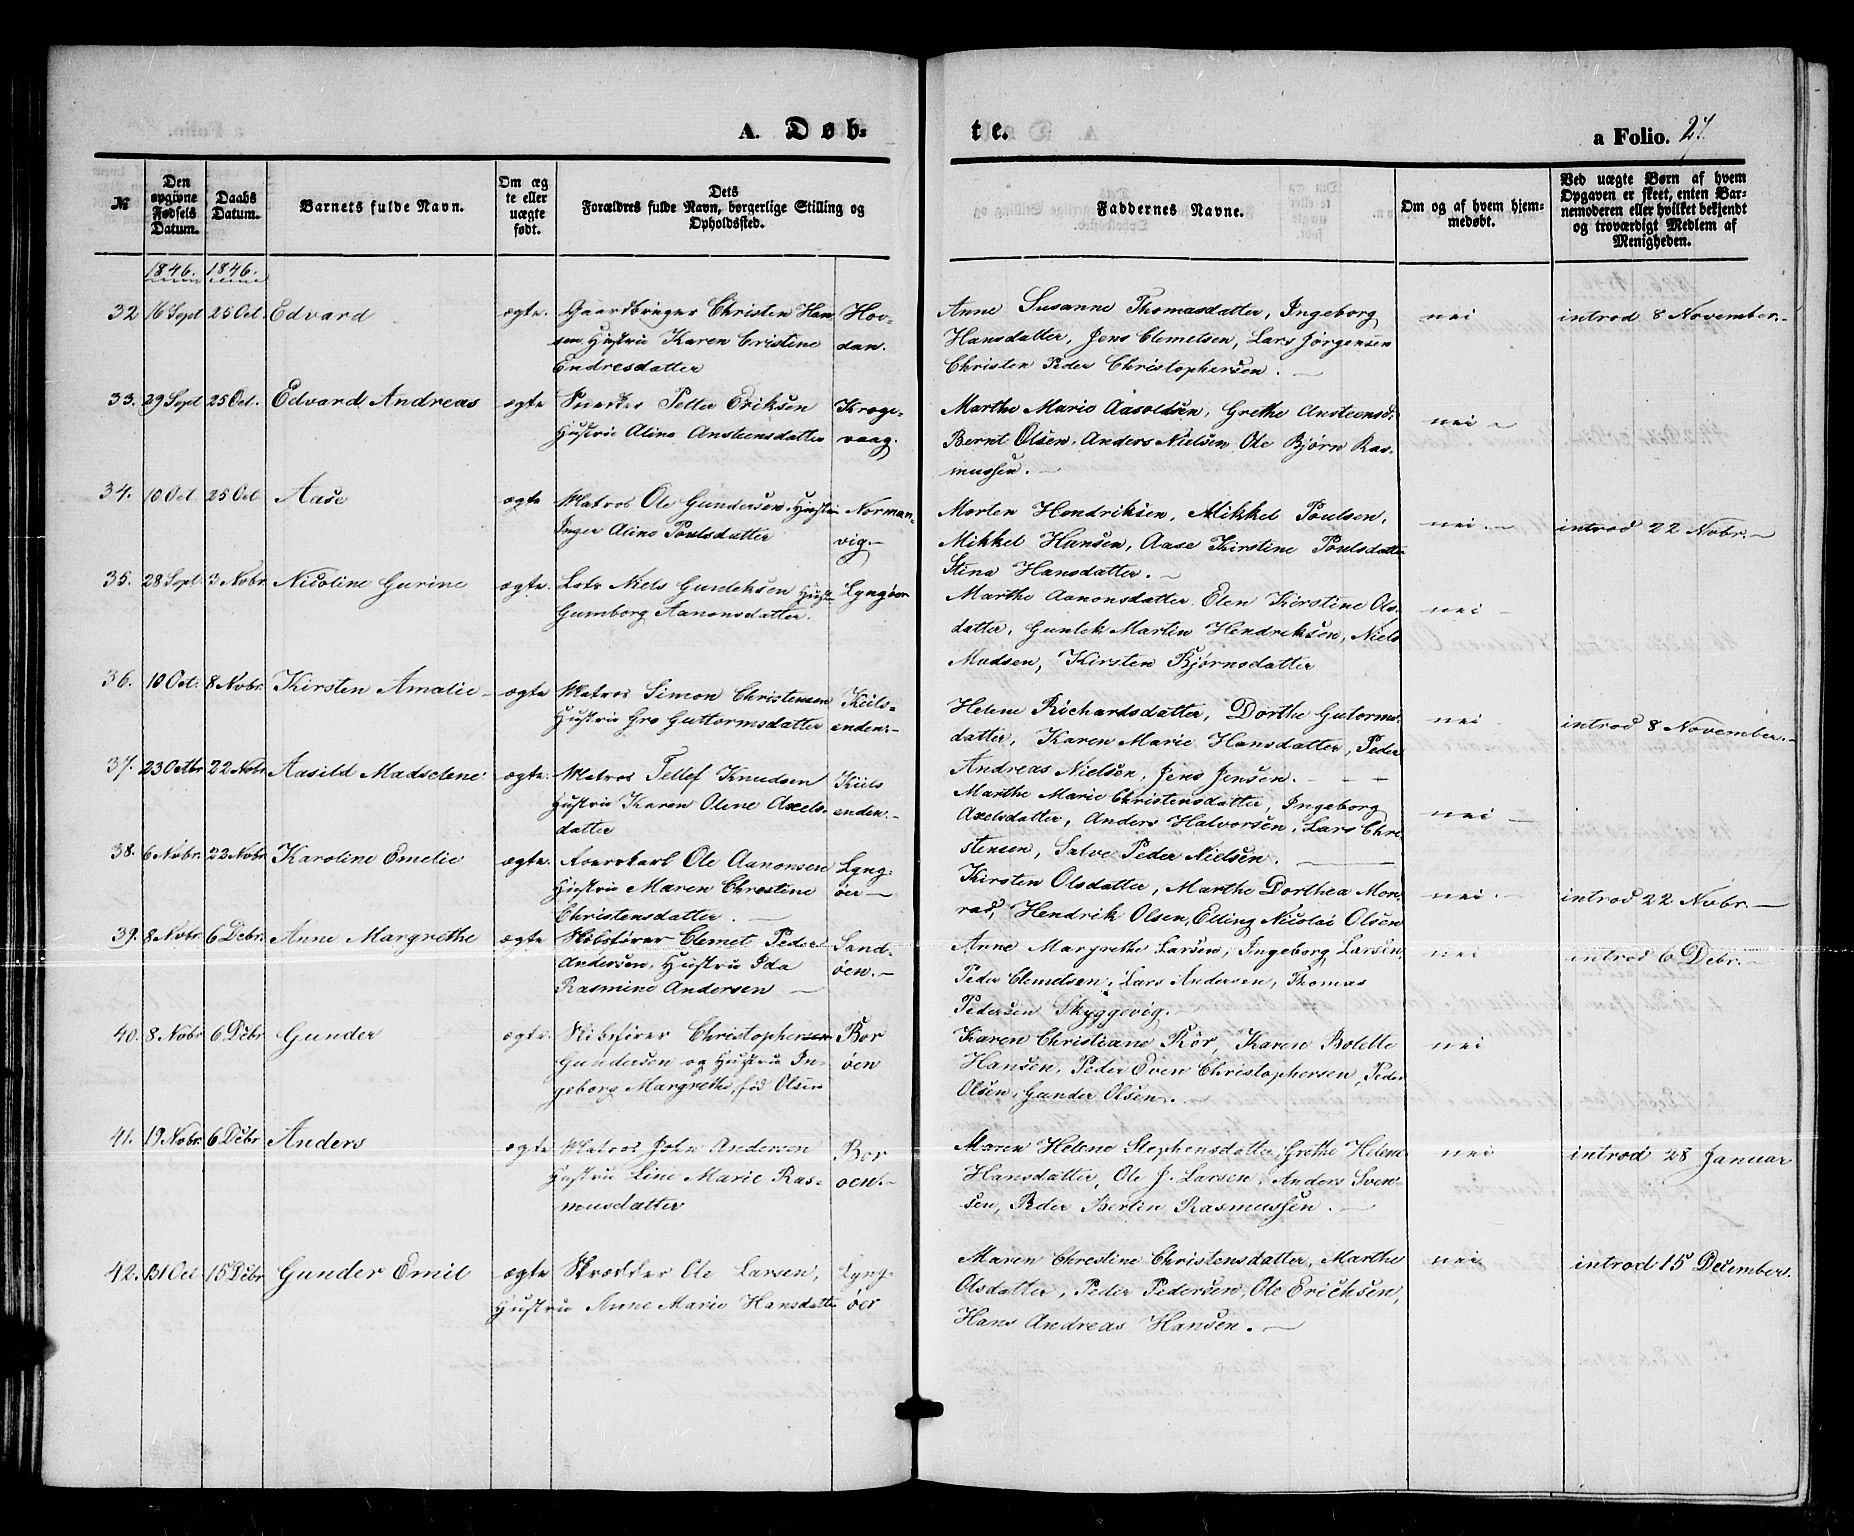 A. Døb=
te.
a Folio. 27.
№
Den opgivne Fødsels Datum.
Daabs Datum.
Barnets fulde Navn.
Om ægte eller uægte født.
Dets Forældres fulde Navn, borgerlige Stilling og Opholdssted.
Faddernes Navne.
Om og af hvem hjemmedøbt.
Ved uægte Børn af hvem Opgaven er skeet, enten Barnemoderen eller hvilket bekjendt og troværdigt Medlem af Menigheden.
1846. 1846.
32 16 Sept 25 Oct. Edvard ægte. Gaardbruger Christen Han Hov-
sen Hustru Karen Cristine dan.
Endresdatter
Anne Susanne Thomasdatter, Ingeborg nei introd 8 November.
Hansdatter, Jens Clemetsen, Lars Jørgensen
Christen Peder Christophersen.
33. 29 Sept 25 Oct. Edvard Andreas ægte Petter Eriksen Krogе-
Hustru Aline Ansteensdatter vaag.
Marthe Marie Aasoldsen, Grethe Ansteensd. nei
Bernt Olsen, Anders Nielsen Ole Bjørn Ras-
mussen.
34. 10 Oct 25 Oct Aase ægte Matros Ole Gundersen, Hustru Norman-
Inger Aline Poulsdatter vig.
Morten Hendriksen, Mikkel Poulsen, nei. introd 22 Nobr.
Mikkel Hansen, Aase Kirstine Poulsdatter
Stina Hansdatter.
35. 28 Sept. 3 Nobr. Nicoline Gurine ægte. Lots Niels Gunleksen Hust Lyngøer
Gumborg Aanonsdatter.
Marthe Aanonsdatter, Elen Kirstine Ols- nei
datter, Gunlek Martin Hendriksen, Niels
Madsen, Kirsten Bjørnsdatter
36. 10 Oct. 8 Nobr. Kirsten Amalie ægte Matros Simon Christensen Kiils-
Hustru Gro Guttormsdatter enden.
Helene Richardsdatter, Dorthe Gutorms- nei introd 8 November.
datter, Karen Marie Hansdatter, Peder
Andreas Nielsen, Jens Jensen.
37. 23 Octbr 22 Nobr. Aasild Madselene ægte. Matros Tellef Knudsen Kiils
Hustru Karen Olene Axels- enden.
datter
Marthe Marie Christensdatter, Ingeborg
Axelsdatter, Anders Halvorsen, Lars Chri- nei
stensen, Salve Peder Nielsen.
38. 6 Nobr. 22 Nobr. Karoline Emelie ægte. Ole Aanonsen Lyng-
Hustru Maren Chrestine øer
Christensdatter.
Kirsten Olsdatter, Marthe Dorthea Mon- nei. introd 22 Nobr.
rad, Hendrik Olsen, Elling Nicolai Olsen
39. 8 Nobr. 6 Debr. Anne Margrethe ægte Skibsfører Clemet Peder Sand-
Andersen, Hustru Ida øen.
Rasmine Andersen
Anne Margrethe Larsen, Ingeborg Larsen, nei introd 6 Debr.
Peder Clemetsen, Lars Andersen, Thomas
Pedersen Skyggevig.
40. 8 Nobr 6 Debr Gunder ægte. Skibsfører Christophersen Bor
Gundersen og Hustru In- øen
geborg Margrethe, fød Olsen
Karen Christiane Rör, Karen Bolette nei
Hansen, Peder Even Christophersen, Peder
Olsen, Gunder Olsen.
41. 19 Nobr. 6 Debr Anders ægte Matros John Andersen Bor
Hustru Line Marie Ras- oen.
musdatter
Maren Helene Stephensdatter, Grethe Helene nei introd 28 Januar
Hansdatter, Ole J. Larsen, Anders Sven-
sen, Peder Bertin Rasmussen.
42. 31 Oct 15 Debr Gunder Emil ægte Skrædder Ole Larsen, Lyng-
Hustru Anne Marie Hansdatter øer
Maren Chrestine Christensdatter, Marthe nei introd 15 December.
Olsdatter, Peder Pedersen, Ole Erichsen,
Hans Andreas Hansen.